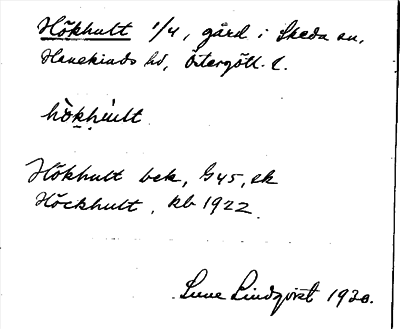 Hökhult 1/4, gård i Skeda sn,
Hanekinds hd, Östergötl. l.
hö̀kḥúlt
Hökhult bek, G45, ek
Höckhult, kb 1922
Sune Lindqvist 1930.